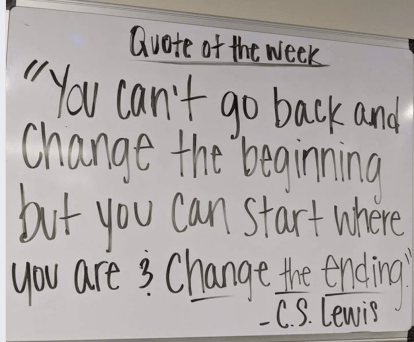 Quote of the Week
"You can't go back and
change the beginning
but you can start where
you are & change the ending."
-C.S. Lewis